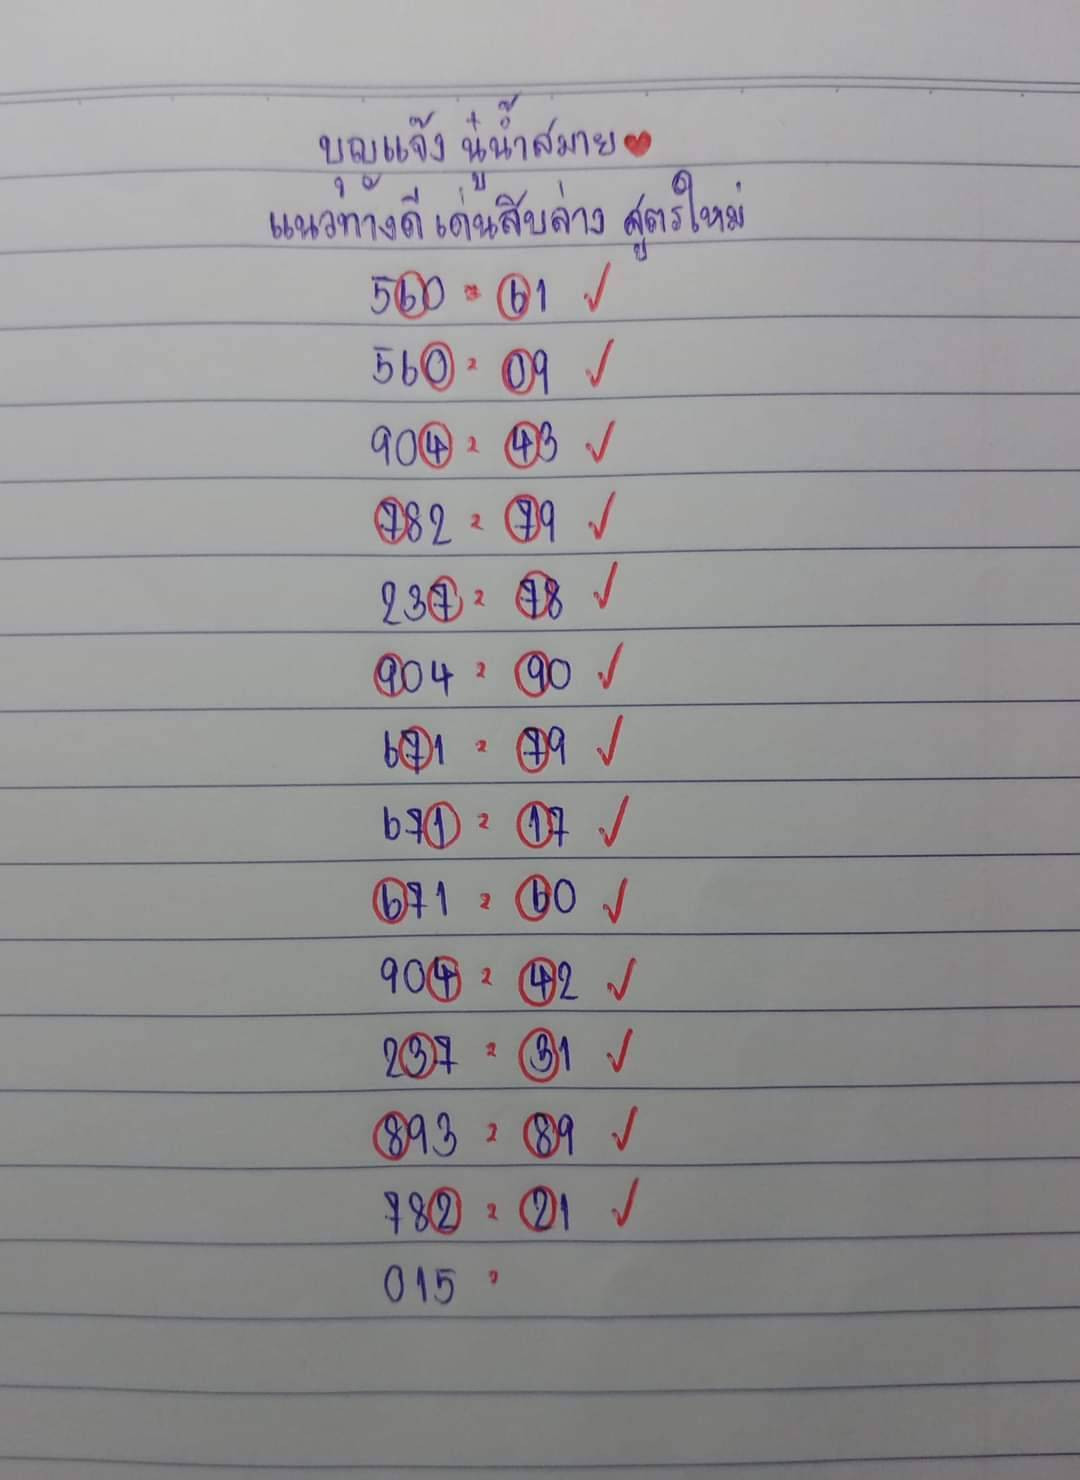 บุญแจ๊ง นู๋น้ำสมาย❤
แนวทางดี เด่นสิบล่าง สูตรใหม่
560 = 61 ✓
560 = 09 ✓
904 = 43 ✓
782 = 79 ✓
237 = 78 ✓
904 = 90 ✓
671 = 79 ✓
671 = 17 ✓
671 = 60 ✓
904 = 42 ✓
237 = 31 ✓
893 = 89 ✓
782 = 21 ✓
015 =